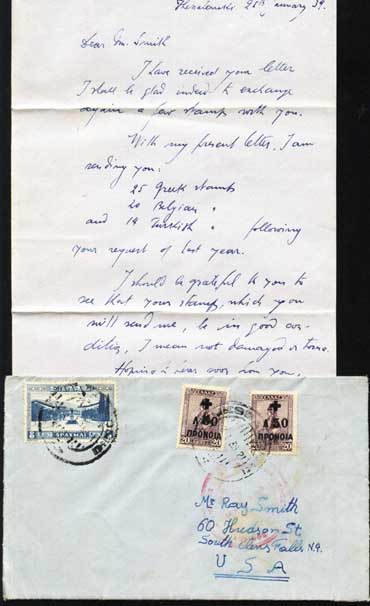 Thessaloniki 28th January 39.
Dear Mr. Smith
I have received your letter
I shall be glad indeed to exchange
again a few stamps with you.
With my present letter, I am
sending you:
25 Greek stamps
20 Belgian "
and 19 Turkish " following
your request of last year.
I should be grateful to you to
see that your stamps, which you
will send me, be in good con-
dition, I mean not damaged or torne.
Hoping to hear soon from you,
ΕΛΛΑΣ
ΔΡΑΧΜΑΙ
ΕΛΛΑΣ
Λ 50
ΠΡΟΝΟΙΑ
20
ΕΛΛΑΣ
Λ 50
ΠΡΟΝΟΙΑ
20
Mr Ray Smith
60 Hudson St
South Glens Falls N.Y.
U S A